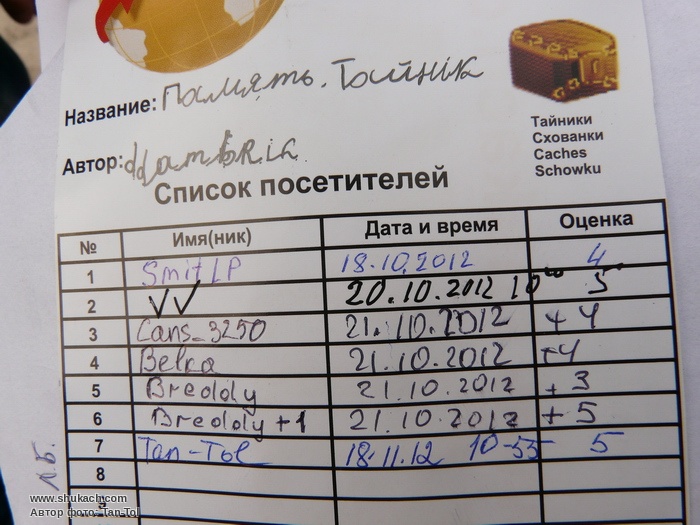 Название: Память. Тайнік
Тайники
Схованки
Caches
Schowku
Автор:
Список посетителей
№ Имя(ник) Дата и время Оценка
1 Smit LP 18.10.2012 4
2 VV 20.10.2012 10 00 5
3 Cans_3250 21.10.2012 +4
4 Belka 21.10.2012 +4
5 Breddy 21.10.2012 +3
6 Breddy+1 21.10.2012 +5
7 Tan-Tol 18.11.12 10-55 5
8
9
www.shukach.com
Автор фото: Tan-Tol